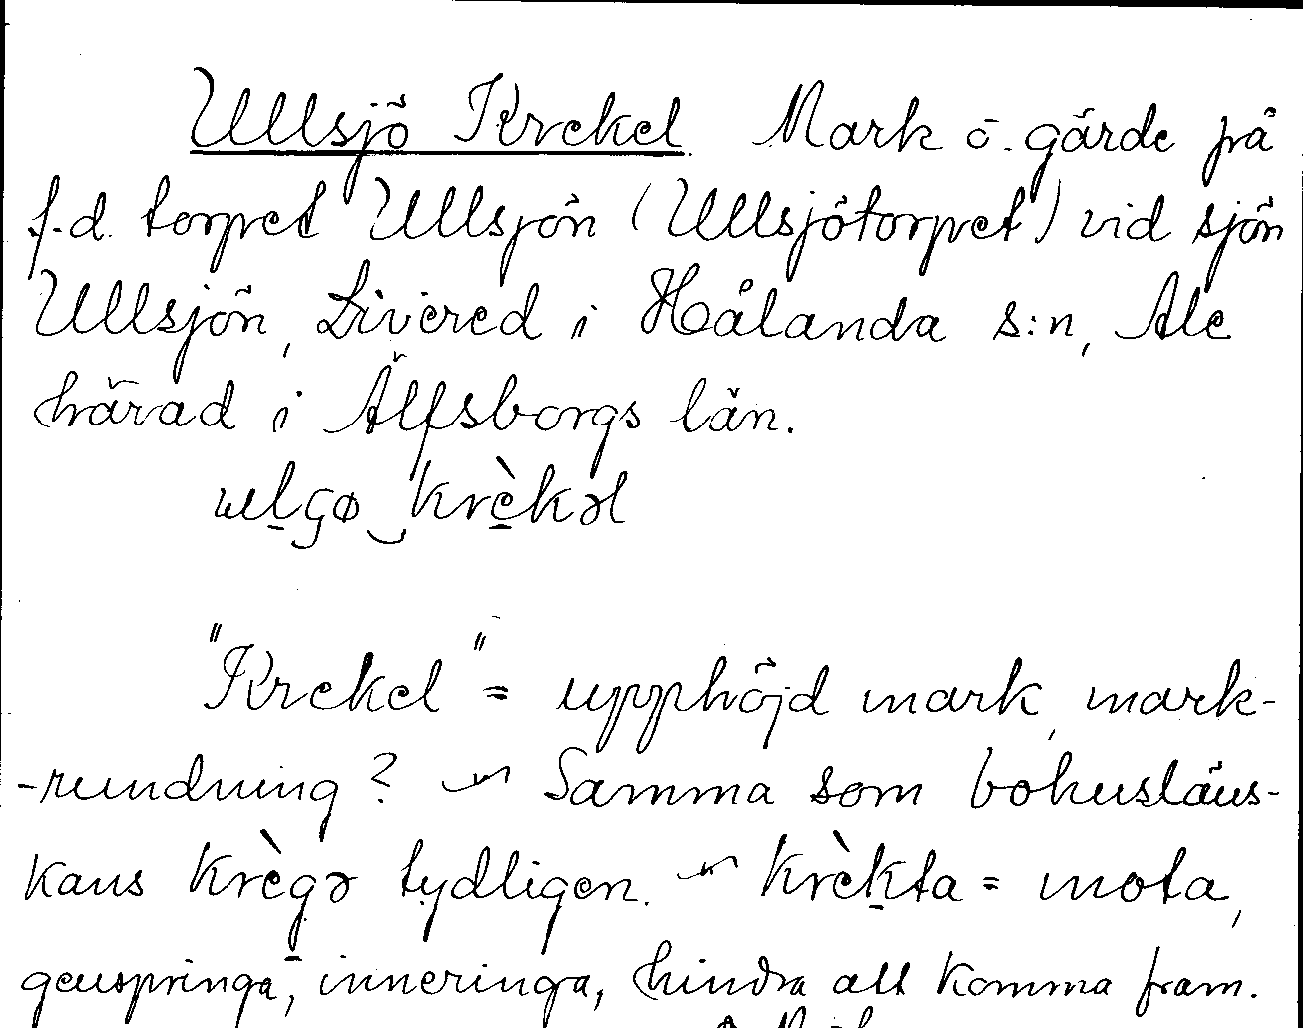 Ullsjö Krekel. Mark o. gärde på
f.d. torpet Ullsjön (Ullsjötorpet) vid sjön
Ullsjön, Livered i Hålanda s:n, Ale
härad i Älfsborgs län.
ulʂø krèkəl
"Krekel" = upphöjd mark, mark-
-rundning? ~ Samma som bohusläns-
kans krègə tydligen. ~ krèkta = mota,
genspringa, inneringa, hindra att komma fram.